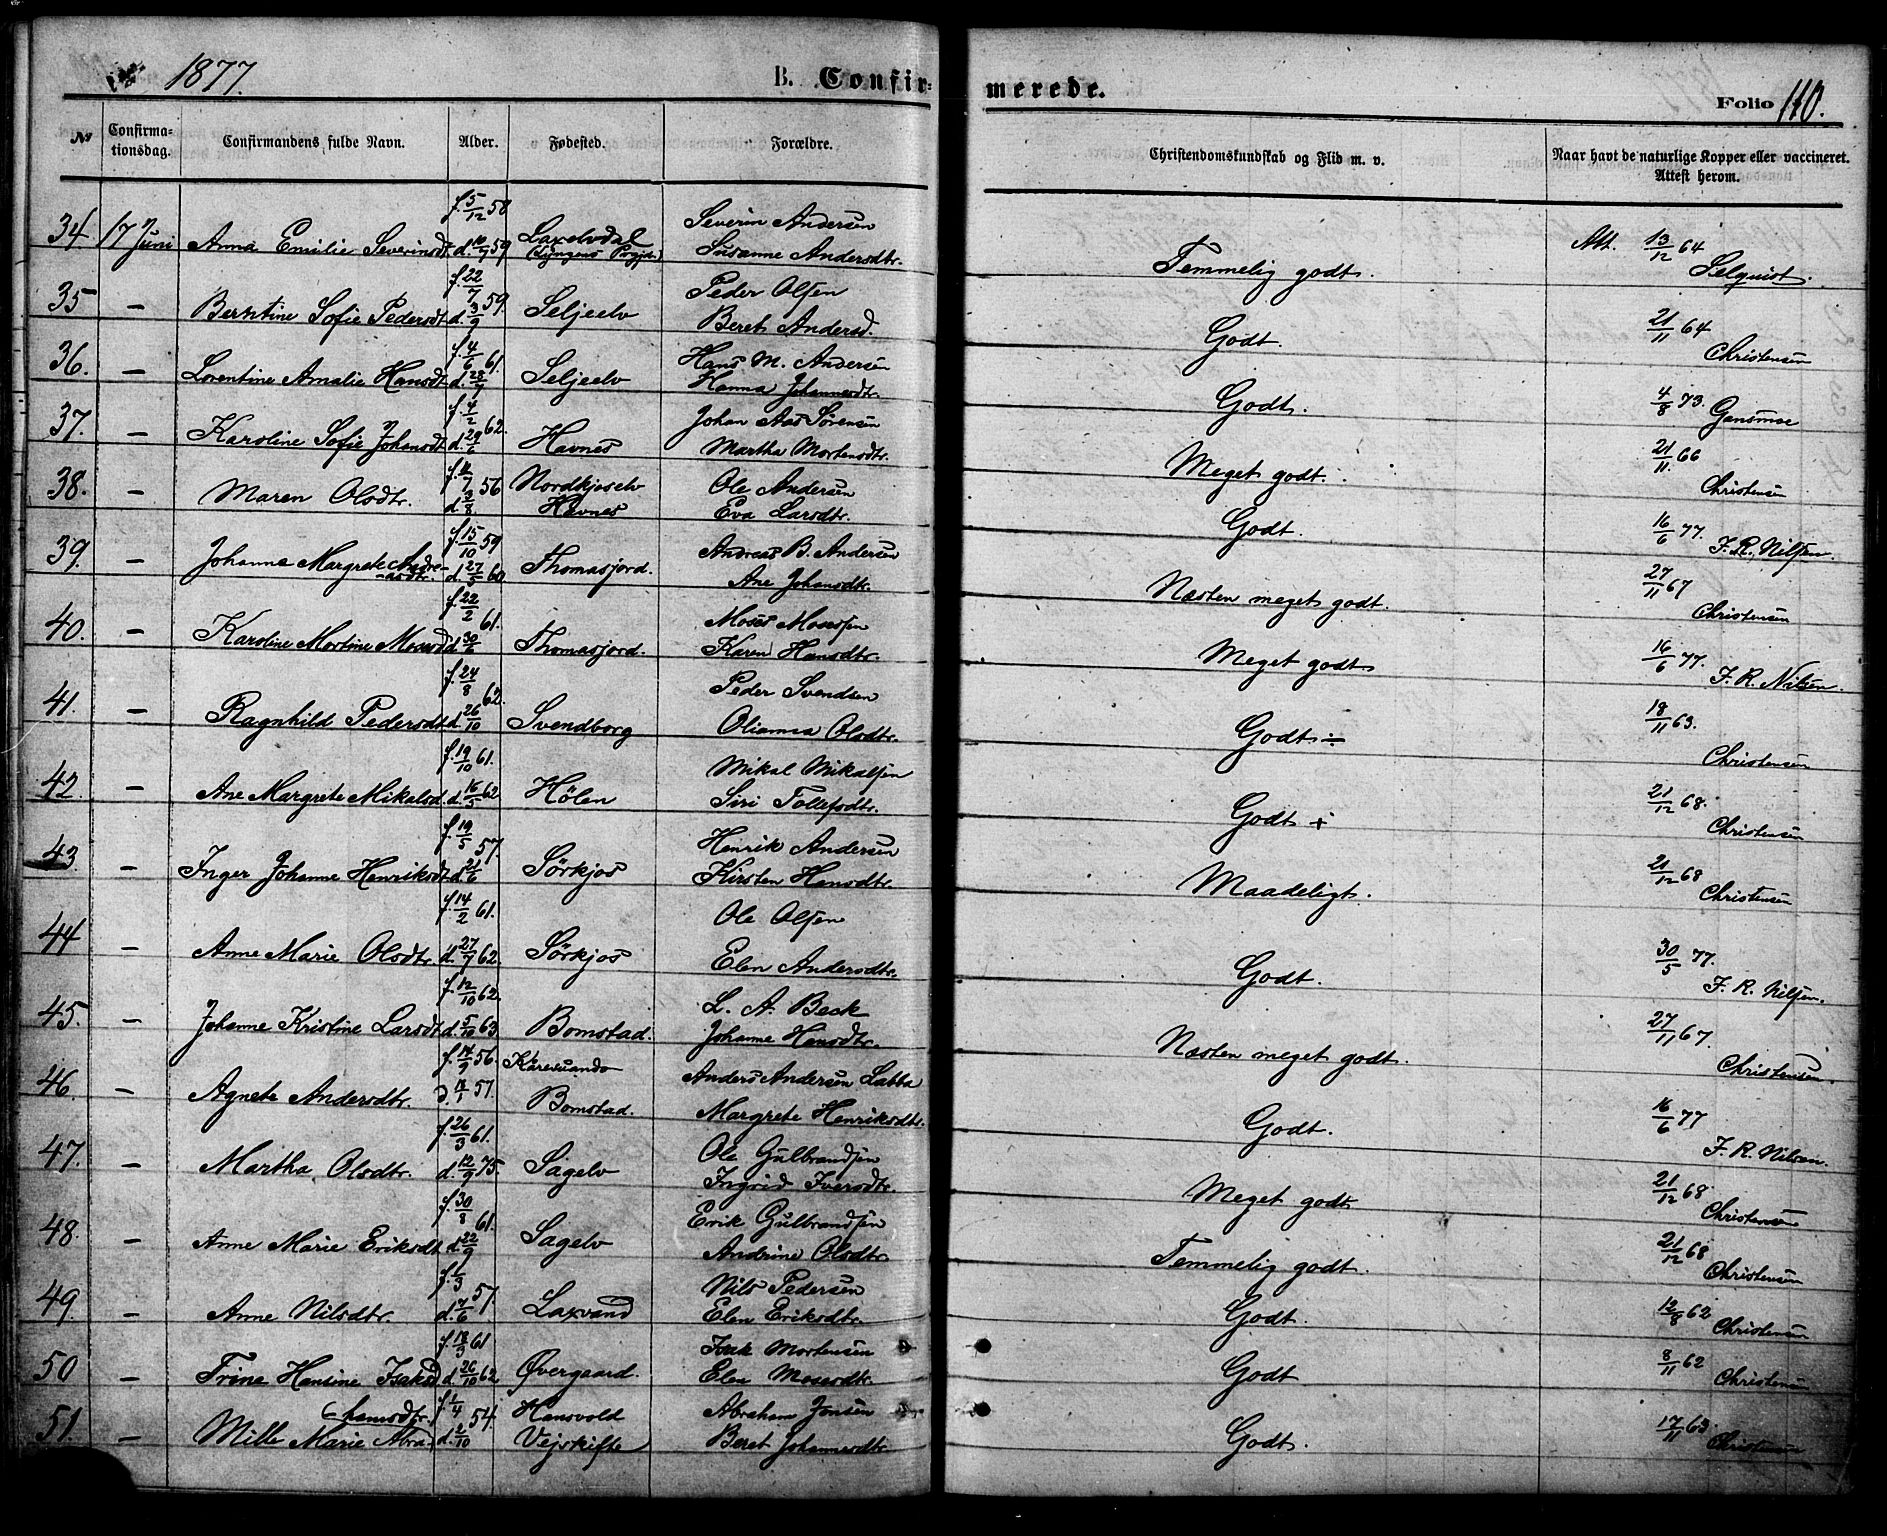 1877.
B. Confir-
merede.
Folio 110.
№ Confirma-tionsdag. Confirmandens fulde Navn. Alder. Fødested. Forældre. Christendomskundskab og Flid m. v. Naar havt de naturlige Kopper eller vaccineret. Attest herom.
34 17 Juni Anna Emilie Severinsdt. f. 5/12 58 d. 10/7 59 Laxelvdal (Lyngens Prgjd.) Severin Andersen Susanne Andersdtr. Temmelig godt. Att. 13/12 64 Selquist.
35 — Berntine Sofie Pedersdt. f. 22/7 59. d. 3/9 Seljeelv Peder Olsen Beret Andersd. Godt. 21/11 64 Christensen
36. — Lorentine Amalie Hansdt. f. 4/6 61. d. 28/7 Seljeelv Hans M. Andersen Hanna Johannesdtr. Godt. 4/8 73. Gansmoe
37. — Karoline Sofie Johansdt. f. 4/2 62. d. 29/6 Havnes Johan Aas Sørensen Martha Mortensdtr. Meget godt. 21/11 66 Christensen
38. — Maren Olsdtr. f. 11/7 56 d. 3/8 Nordkjoselv Havnes Ole Andersen Eva Larsdtr. Godt. 16/6 77. F. R. Nilsen.
39. — Johanne Margrete Andreasdtr. f. 15/10 59 d. 27/5 60 Thomasjord. Andreas B. Andersen Ane Johansdtr. Næsten meget godt. 27/11 67 Christensen
40. — Karoline Mortine Mosesd. f. 22/2 61. d. 30/6 Thomasjord. Moses Mosesen Karen Hansdtr. Meget godt 16/6 77. F. R. Nilsen.
41. — Ragnhild Pedersdt. f. 24/8 62. d. 26/10 Svendborg Peder Svendsen Oliansa Olsdtr. Godt ÷ 18/11 63. Christensen
42. — Ane Margrete Mikalsd. f. 19/10 61. d. 16/5 62 Hølen Mikal Mikalsen Siri Tollefsdtr. Godt + 21/12 68. Christensen
43. — Inger Johanne Henriksdt. f. 19/5 57. d. 21/6 Sörkjos Henrik Andersen Kirsten Hansdtr. Maadeligt. 21/12 68 Christensen
44 — Anne Marie Olsdtr. f. 14/2 61. d. 27/7 62. Sörkjos Ole Olsen Elen Andersdtr. Godt. 30/5 77. F. R. Nilsen.
45. — Johanne Kristine Larsdt. f. 12/10 62. d. 5/10 63 Bomstad. L. A. Beck Johanne Hansdtr. Næsten meget godt. 27/11 67. Christensen.
46. — Agnete Andersdtr. f. 14/9 56. d. 4/1 57. Karesuando Bomstad. Anders Andersen Labba Margrete Henriksdtr. Godt. 16/6 77 F. R. Nilsen.
47. — Martha Olsdtr. f. 26/3 61. d. 12/9 75. Sagelv Ole Gulbrandsen Ingrid Iversdtr. Meget godt 21/12 68. Christensen
48. — Anne Marie Eriksdt. f. 30/8 61. d. 22/9 Sagelv Erik Gulbrandsen Andrine Olsdtr. Temmelig godt. 21/12 68 Christensen
49. — Anne Nilsdtr. f. 1/3 57. d. 7/6 Laxvand Nils Pedersen Elen Eriksdtr. Godt. 12/8 62 Christensen
50 — Trine Hansine Isaksd. f. 13/3 61 d. 26/10 62. Øvergaard. Isak Mortensen Elen Mosesdtr. Godt 8/11 62 Christensen
51. — Mille Marie Abrahamsdtr. f. 1/4 54. d. 2/10 Hansvold Vejskifte Abraham Jonsen Beret Johannesdtr. Godt. 17/11 63. Christensen